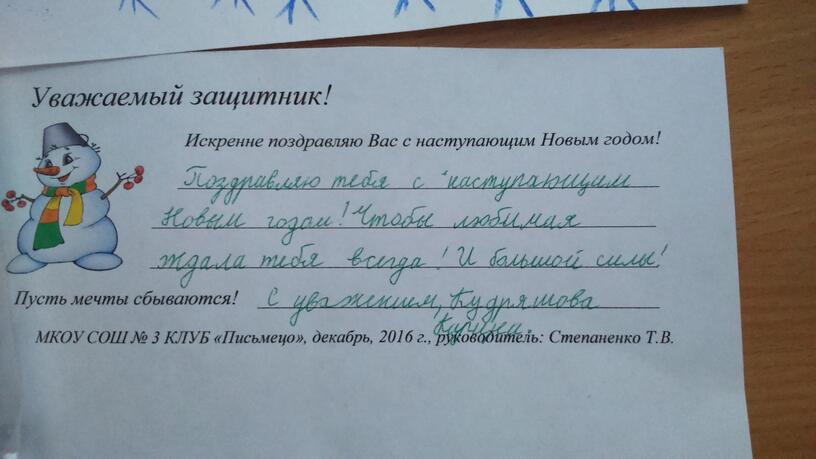 Уважаемый защитник!
Искренне поздравляю Вас с наступающим Новым годом!
Поздравляю тебя с наступающим
Новым годом! Чтобы любимая
ждала тебя всегда! И большой силы!
Пусть мечты сбываются! С уважением, Кудряшова
МКОУ СОШ № 3 КЛУБ «Письмецо», декабрь, 2016 г., руководитель: Степаненко Т.В.